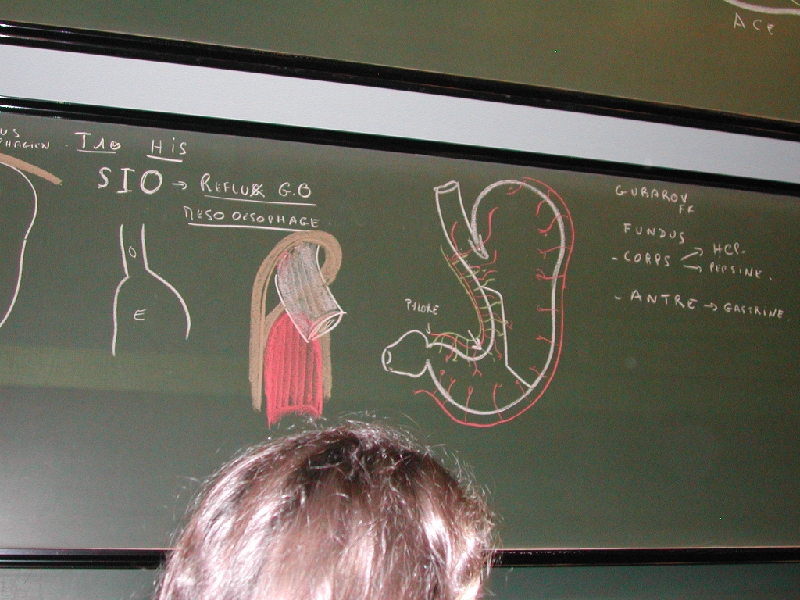 ACP
US
HIS
SIO → REFLUX G.O
MESO OESOPHAGE
O
E
PYLORE
GUBAROV
FR
FUNDUS
- CORPS → HCP.
→ PEPSINE.
- ANTRE → GASTRINE.